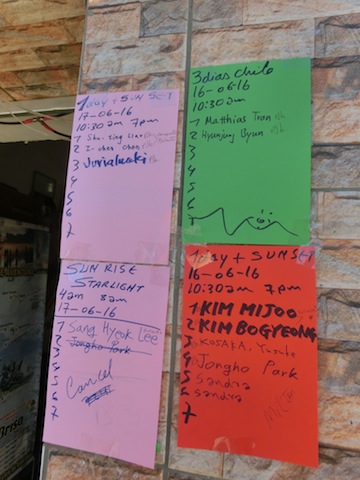 1day + SUN SET
17-06-16
10:30am 7pm
1
2 I-chen chen
3
4
5
6
7
3dias chile
16-06-16
10:30am
1 Matthias Tran
2 Hyunjung Byun
3
4
5
6
7
SUN RISE
STARLIGHT
4am 8am
17-06-16
1 Sang Hyeok Lee
2 Jongho Park
3
4
5
6
7
Cancel
1day + SUNSET
16-06-16
10:30am 7pm
1 KIM MIJOO
2 KIM BOGYEONG
3 KOSAKA, Yusuke
4 Jongho Park
5 Sandra
6 Sandra
7